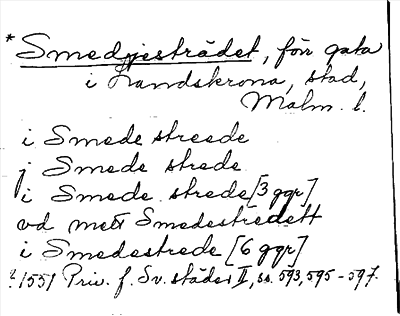 *Smedjesträdet, förr gata
i Landskrona, stad,
Malm. l.
i Smede streede
j Smede strede
i Smede strede [3 ggr]
vd mett Smedestredett
i Smedestrede [6 ggr]
1551 Priv. f. Sv. städer II, ss. 593, 595-597.